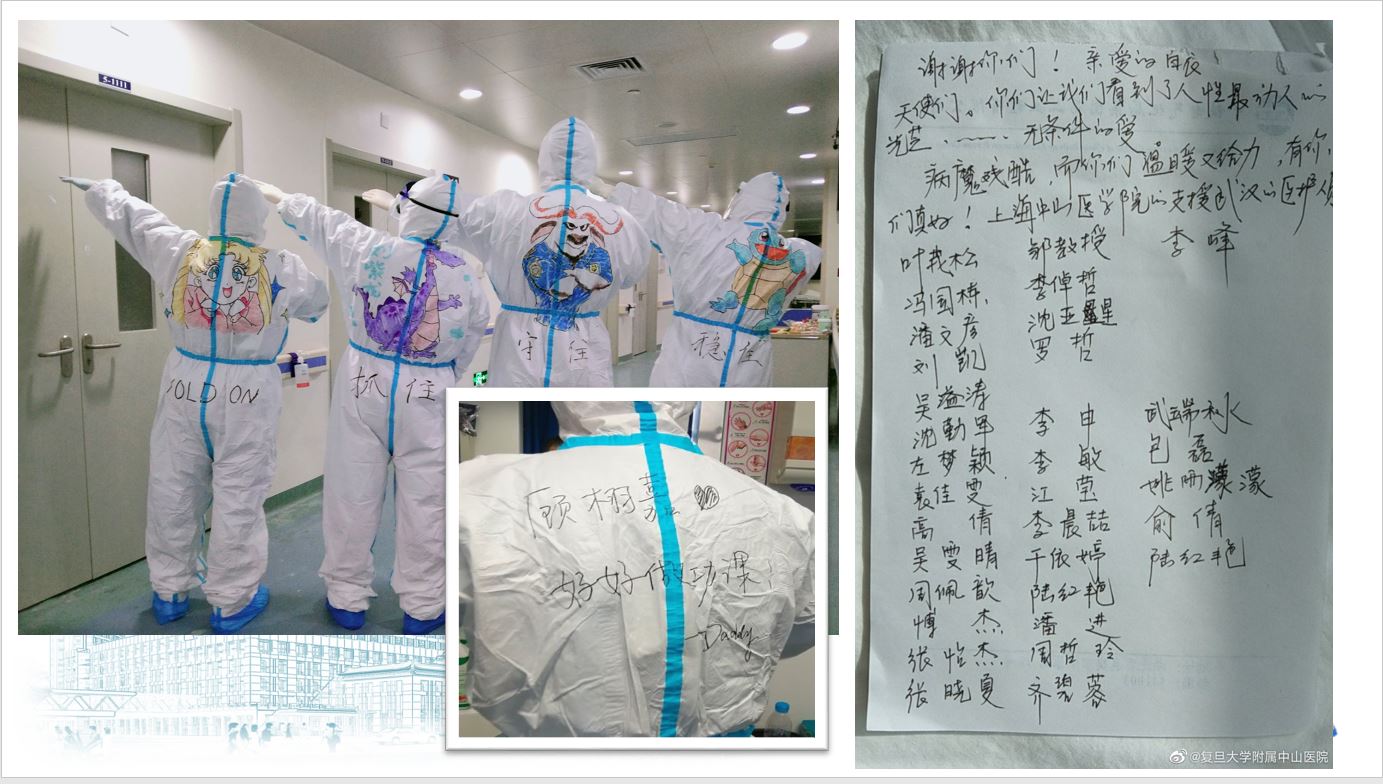 5-1111
HOLD ON
抓住
守住
稳住
顾栩嘉
好好做功课!
Daddy
谢谢你们！亲爱的白衣
天使们。你们让我们看到了人性最动人的
光芒、——无条件的爱
病魔残酷，而你们温暖又给力，有你
们真好！上海中山医学院的支援武汉的医护人员
叶茂松 邹教授 李峰
冯国栋 李倬哲
潘文彦 沈亚星
刘凯 罗哲
吴溢涛
沈勤军 李申 武端水
左梦颖 李敏 包磊
袁佳雯 江莹 姚雨濛
高倩 李晨喆 俞倩
吴雯晴 干依婷 陆红艳
周佩歆 陆红艳
傅杰 潘进
张怡杰 周哲玲
张晓夏 齐碧蓉
@复旦大学附属中山医院